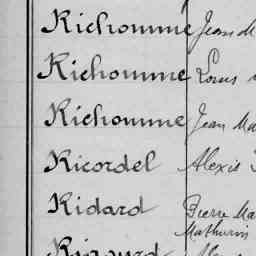 Richomme Jean M
Richomme Louis
Richomme Jean Ma
Ricordel Alexis
Ridard Pierre Ma
Mathurin